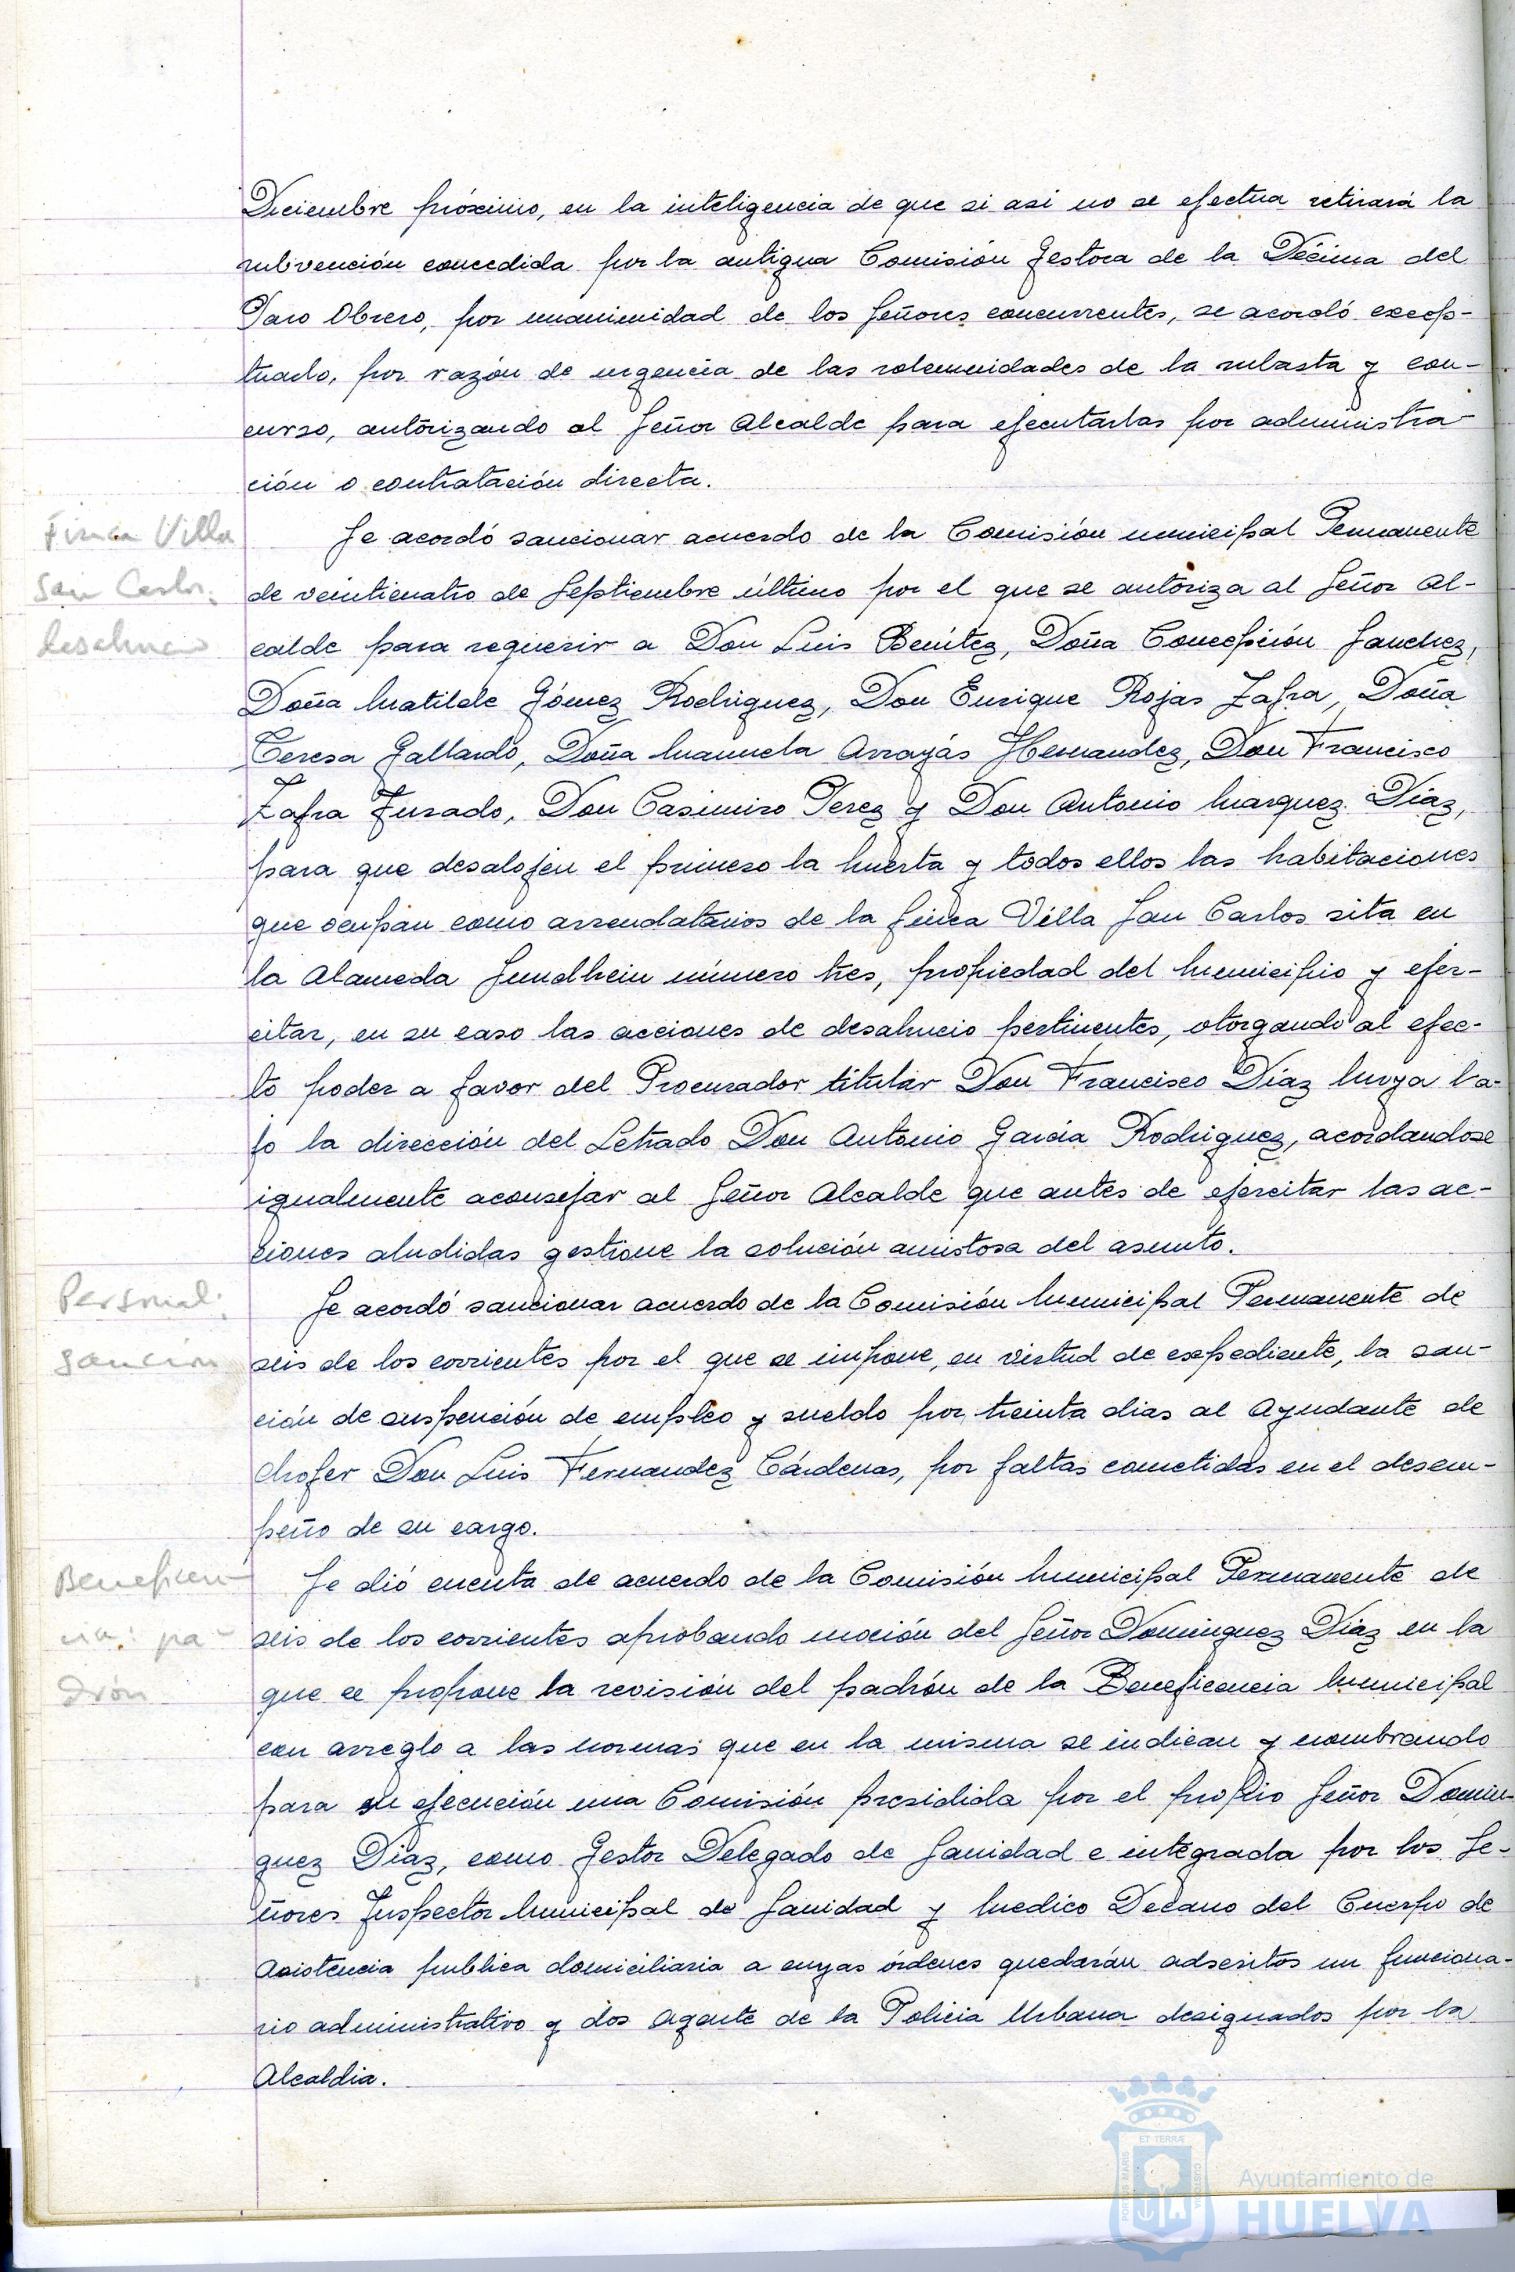 Diciembre próximo, en la inteligencia de que si asi no se efectua retirará la
subvención concedida por la antigua Comisión Gestora de la Décima del
Paro Obrero, por unanimidad de los Señores concurrentes, se acordó excep-
tuarlo, por razón de urgencia de las solemnidades de la subasta y con-
curso, autorizando al Señor Alcalde para ejecutarlas por administra-
ción o contratación directa.
Finca Villa
San Carlos:
desahucio
Se acordó sancionar acuerdo de la Comisión municipal Permanente
de veinticuatro de Septiembre último por el que se autoriza al Señor Al-
calde para requerir a Don Luis Benítez, Doña Concepción Sanchez,
Doña Matilde Gómez Rodriguez, Don Enrique Rojas Zafra, Doña
Teresa Gallardo, Doña Manuela Arrayás Hernandez, Don Francisco
Zafra Jurado, Don Casimiro Perez y Don Antonio Marquez Díaz,
para que desalojen el primero la huerta y todos ellos las habitaciones
que ocupan como arrendatarios de la finca Villa San Carlos sita en
la Alameda Sundhein número tres, propiedad del Municipio y ejer-
citar, en su caso las acciones de desahucio pertinentes, otorgando al efec-
to poder a favor del Procurador titular Don Francisco Díaz Moya ba-
jo la dirección del Letrado Don Antonio García Rodriguez, acordandose
igualmente aconsejar al Señor Alcalde que antes de ejercitar las ac-
ciones aludidas gestione la solución amistosa del asunto.
Personal:
Sanción
Se acordó sancionar acuerdo de la Comisión Municipal Permanente de
seis de los corrientes por el que se impone, en virtud de expediente, la san-
ción de suspención de empleo y sueldo por treinta dias al Ayudante de
chofer Don Luis Fernandez Cárdenas, por faltas cometidas en el desem-
peño de su cargo.
Beneficen-
cia: pa-
drón
Se dió cuenta de acuerdo de la Comisión Municipal Permanente de
seis de los corrientes aprobando moción del Señor Dominguez Diaz en la
que se propone la revisión del padrón de la Beneficencia Municipal
con arreglo a las normas que en la misma se indican y nombrando
para su ejecución una Comisión presidida por el propio Señor Domin-
guez Diaz, como Gestor Delegado de Sanidad e integrada por los Se-
ñores Inspector Municipal de Sanidad y Medico Decano del Cuerpo de
Asistencia publica domiciliaria a cuyas órdenes quedarán adscritos un funciona-
rio administrativo y dos Agente de la Policia Urbana designados por la
Alcaldia.
ET TERRÆ
PORTUS MARIS
CUSTODIA
Ayuntamiento de
HUELVA